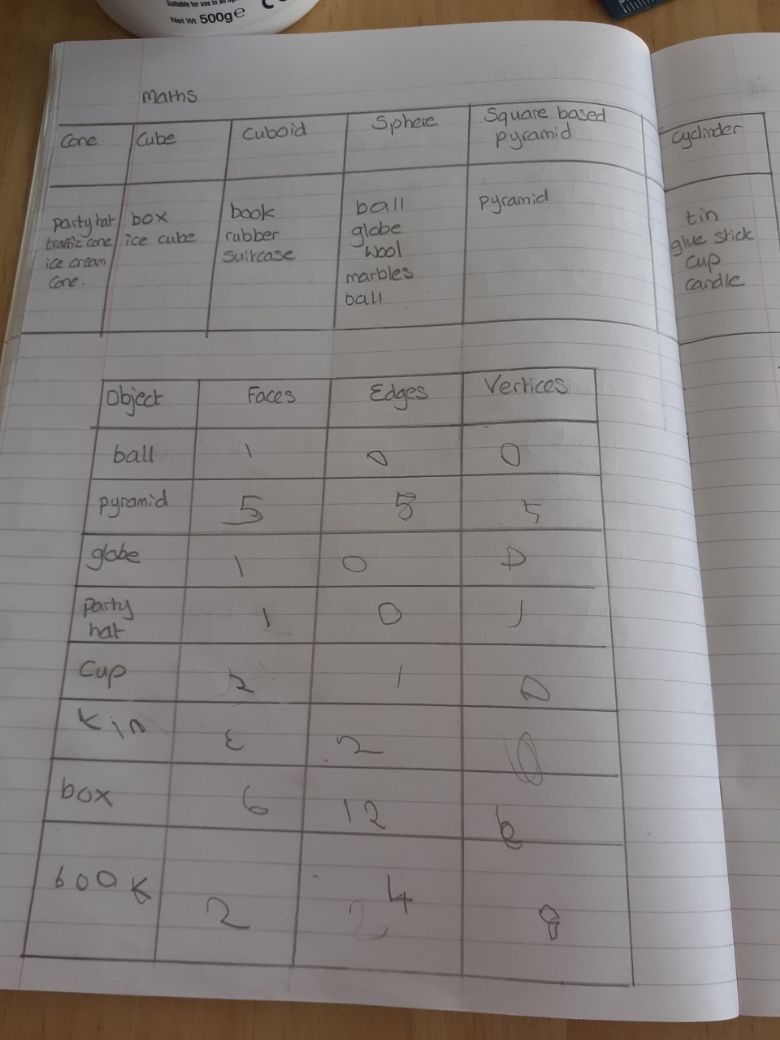 Suitable for use in all
Net Wt 500g e
Maths
Cone Cube Cuboid Sphere Square based pyramid Cyclinder
party hat
traffic cone
ice cream
cone.
box
ice cube
book
rubber
suitcase
ball
globe
wool
marbles
ball
pyramid
tin
glue stick
cup
candle
Object Faces Edges Vertices
ball 1 0 0
pyramid 5 8 5
globe 1 0 0
Party hat 1 0 1
Cup 2 1 0
Kin 3 2 0
box 6 12
book 2 4 8